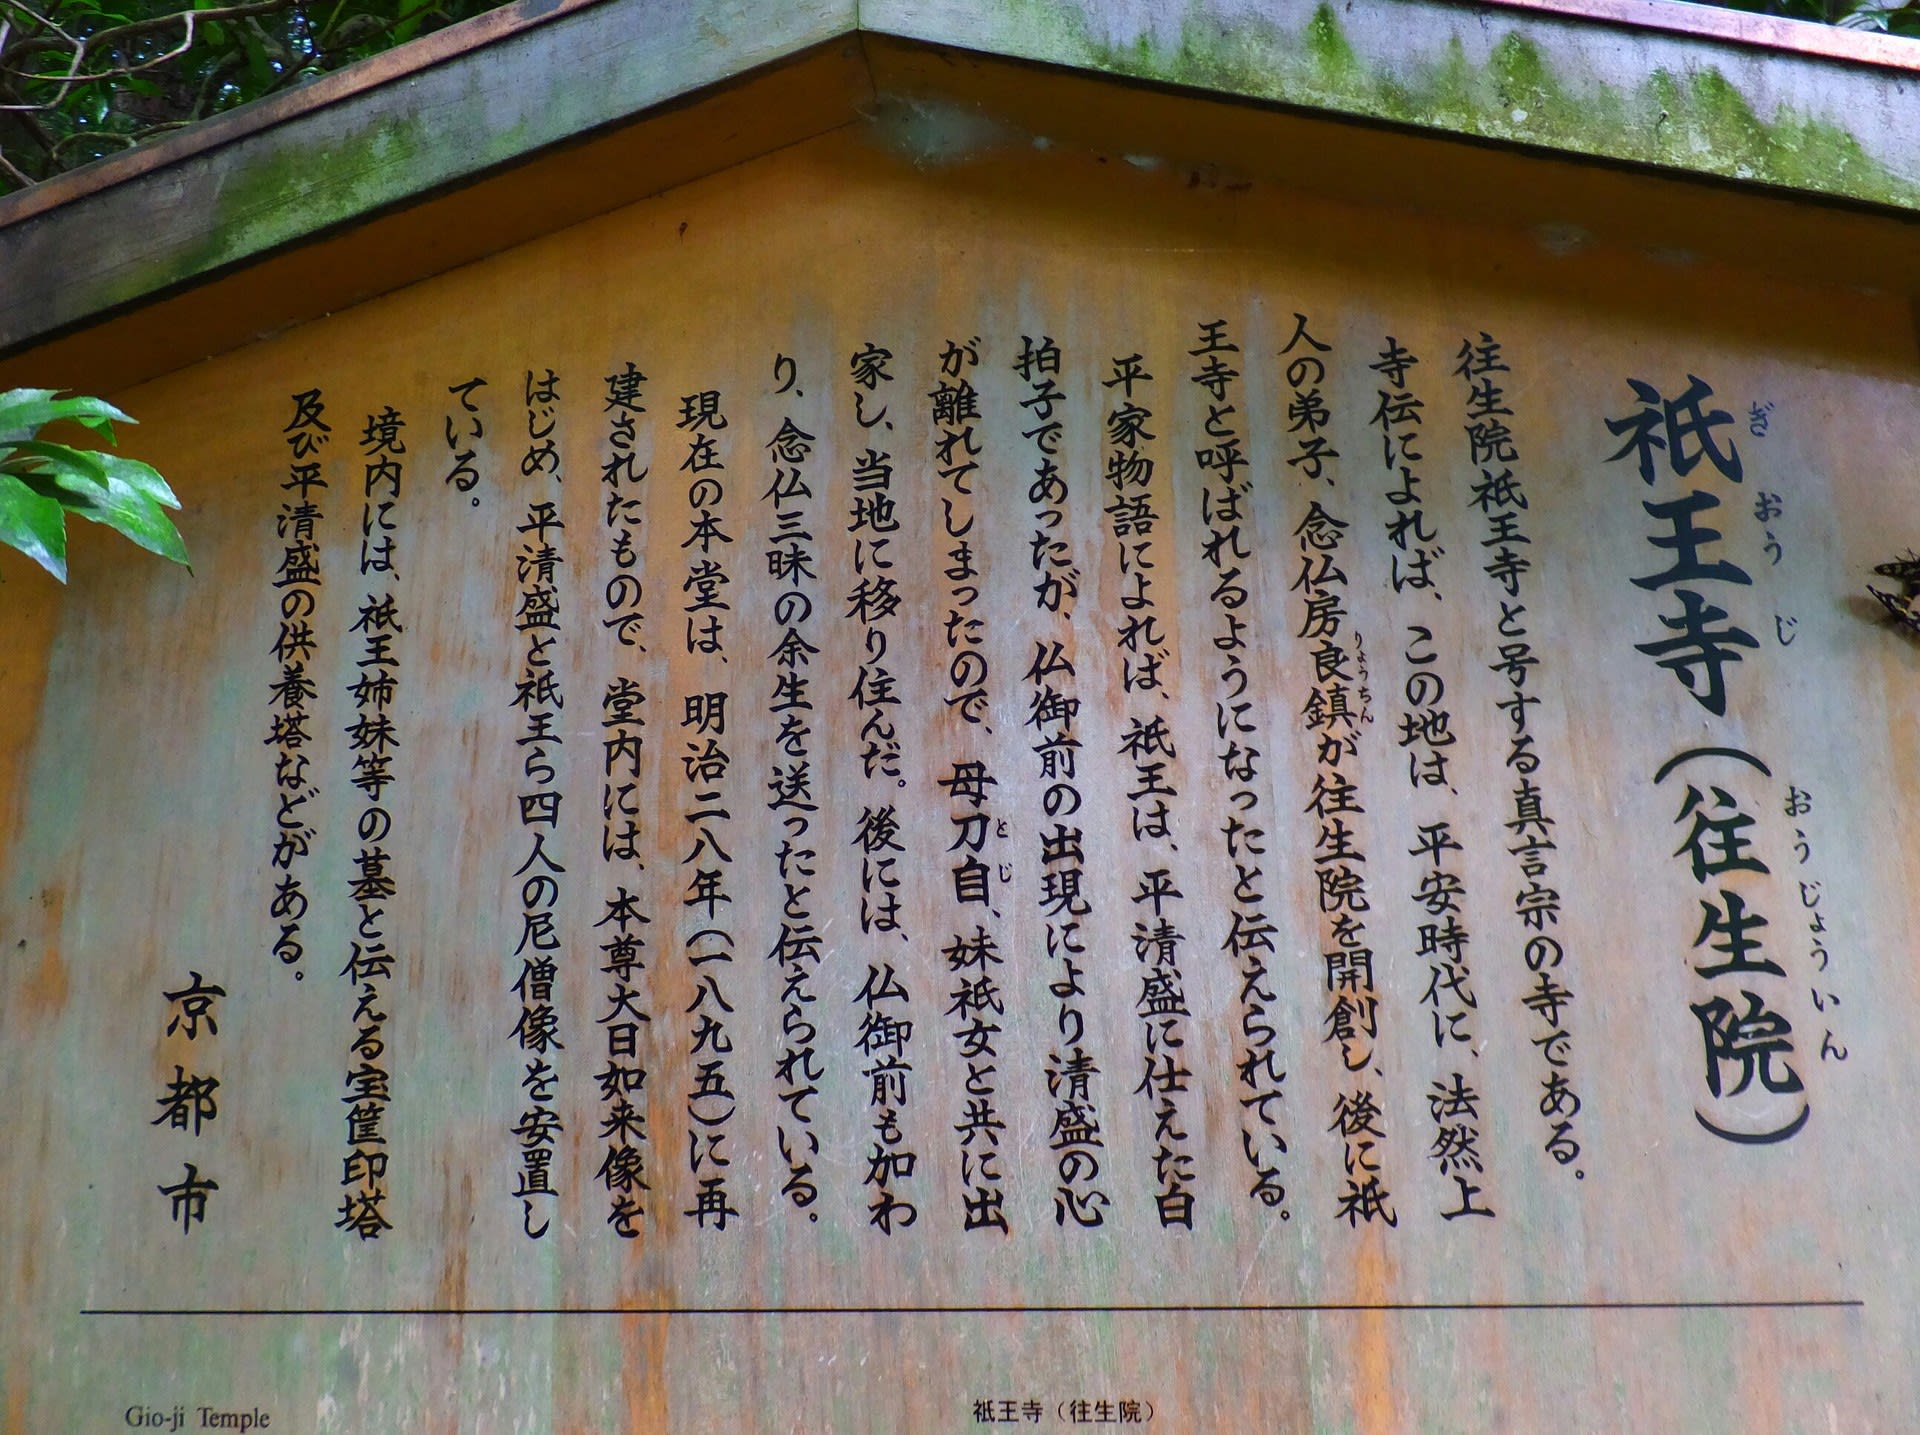 祇王寺（往生院）
ぎおうじ
おうじょういん
往生院祇王寺と号する真言宗の寺である。
寺伝によれば、この地は、平安時代に、法然上
人の弟子、念仏房良鎮が往生院を開創し、後に祇
りょうちん
王寺と呼ばれるようになったと伝えられている。
平家物語によれば、祇王は、平清盛に仕えた白
拍子であったが、仏御前の出現により清盛の心
が離れてしまったので、母刀自、妹祇女と共に出
とじ
家し、当地に移り住んだ。後には、仏御前も加わ
り、念仏三昧の余生を送ったと伝えられている。
現在の本堂は、明治二八年（一八九五）に再
建されたもので、堂内には、本尊大日如来像を
はじめ、平清盛と祇王ら四人の尼僧像を安置し
ている。
境内には、祇王姉妹等の墓と伝える宝筐印塔
及び平清盛の供養塔などがある。
京都市
Gio-ji Temple
祇王寺（往生院）